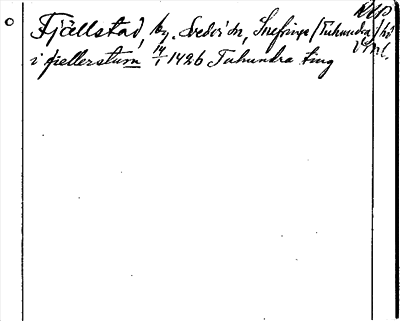 RAP
Fjällstad, by. Svedvi sn, Snefringe (Tuhundra) hd
Vstml.
i fiellerstum 14/1 1426 Tuhundra ting